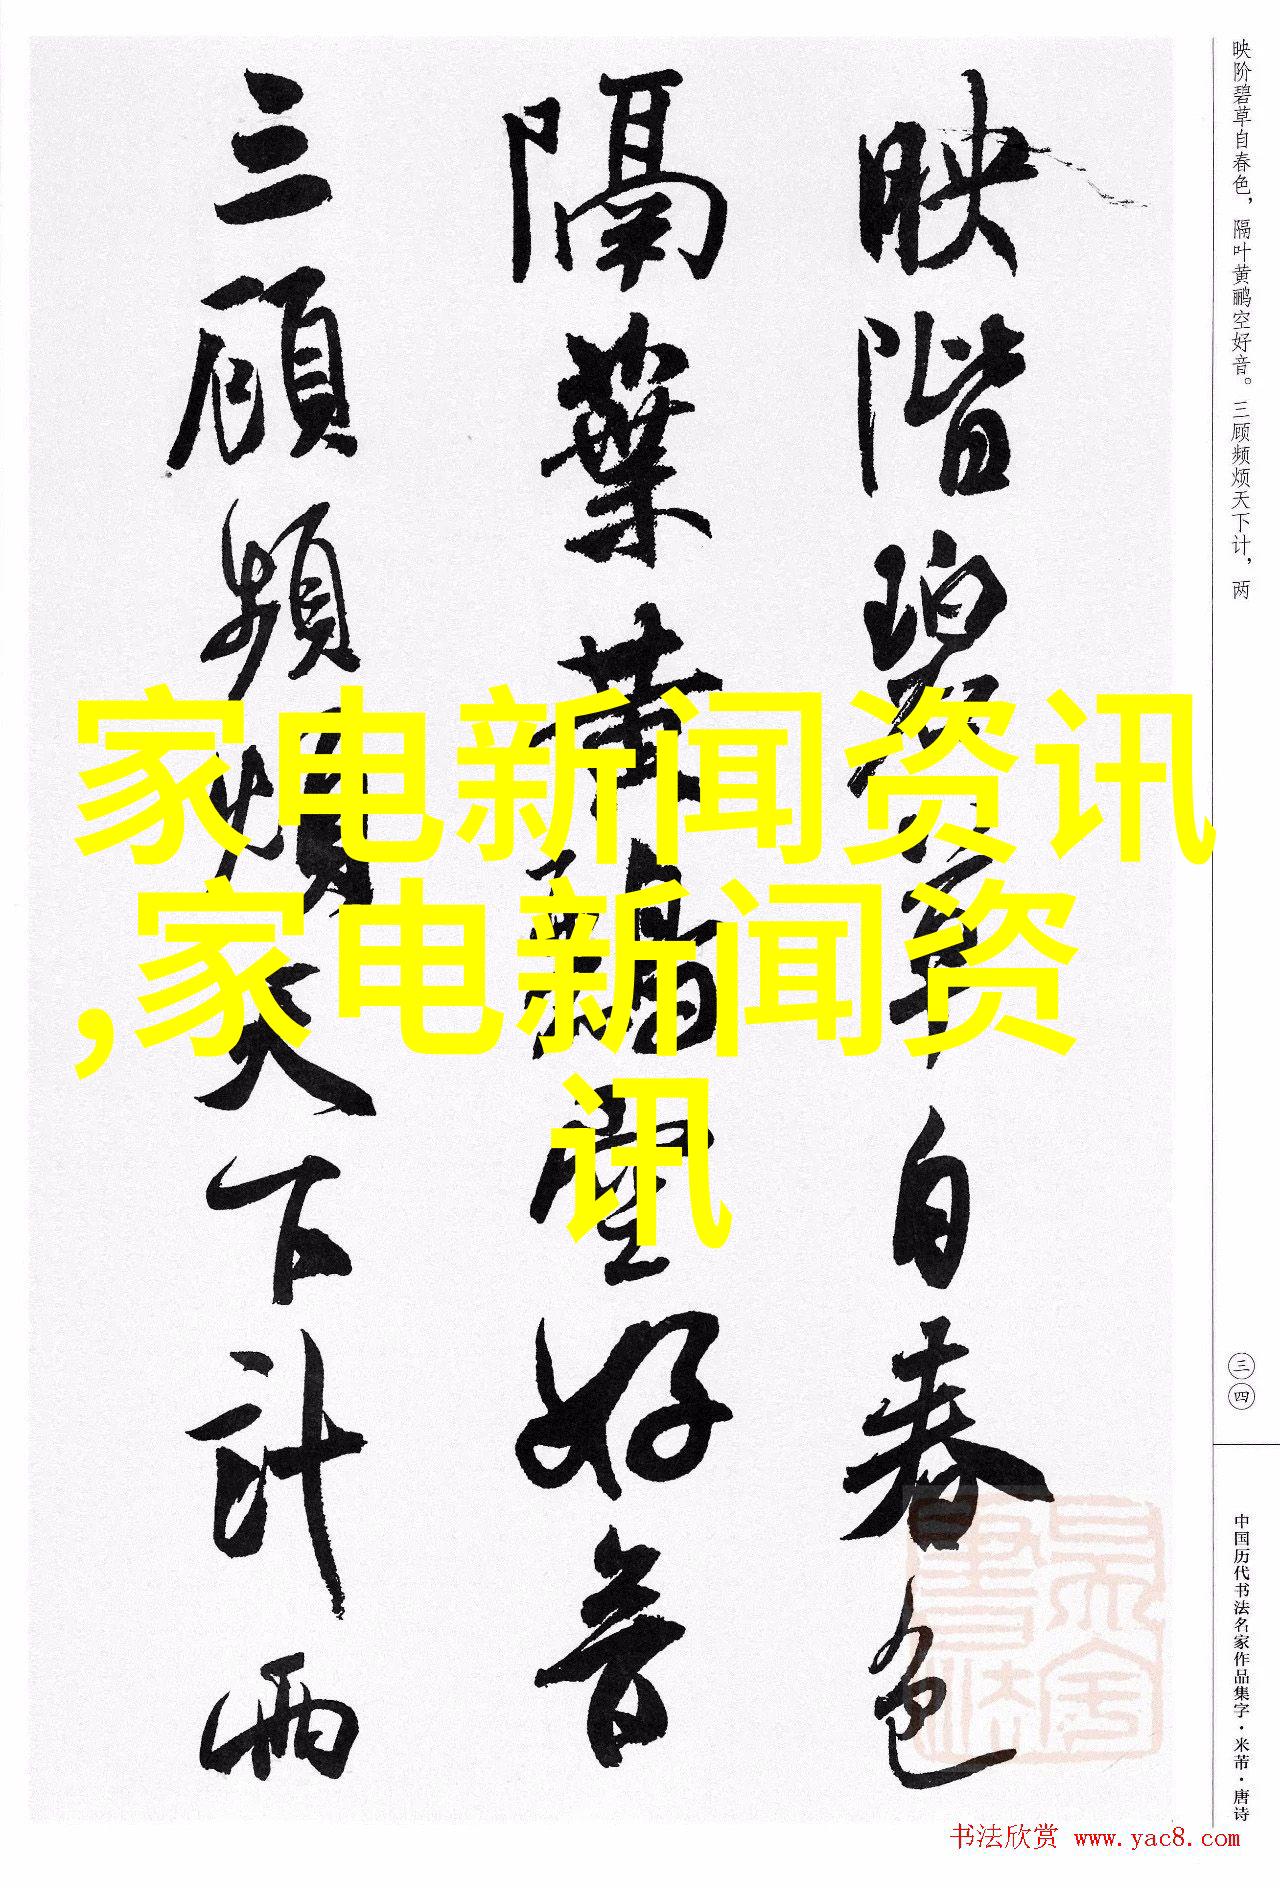 映階碧草自春色
隔葉黃鸝空好音
三顧頻煩天下計兩
映阶碧草自春色，隔叶黄鹂空好音。三顾频烦天下计，两
家电新闻资讯
,家电新闻资
讯
三四
中国历代书法名家作品集字·米芾·唐诗
书法欣赏 www.yac8.com